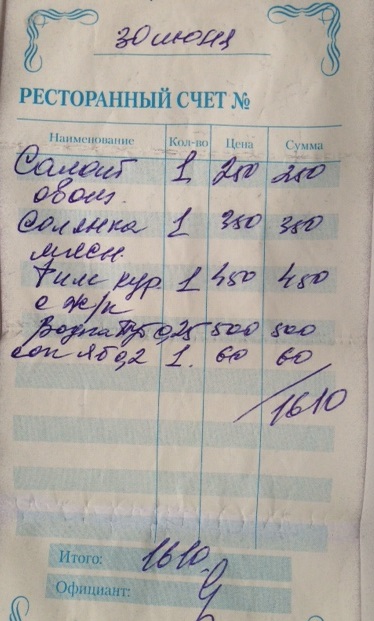 30 июня
РЕСТОРАННЫЙ СЧЕТ №
Наименование Кол-во Цена Сумма
Салат 1 250 250
овощ.
Солянка 1 350 350
мясн.
Филе кур 1 450 450
с ж/к
Водка 0,25 500 500
сок яб 0,2 1. 60 60
1610
Итого: 1610
Официант: